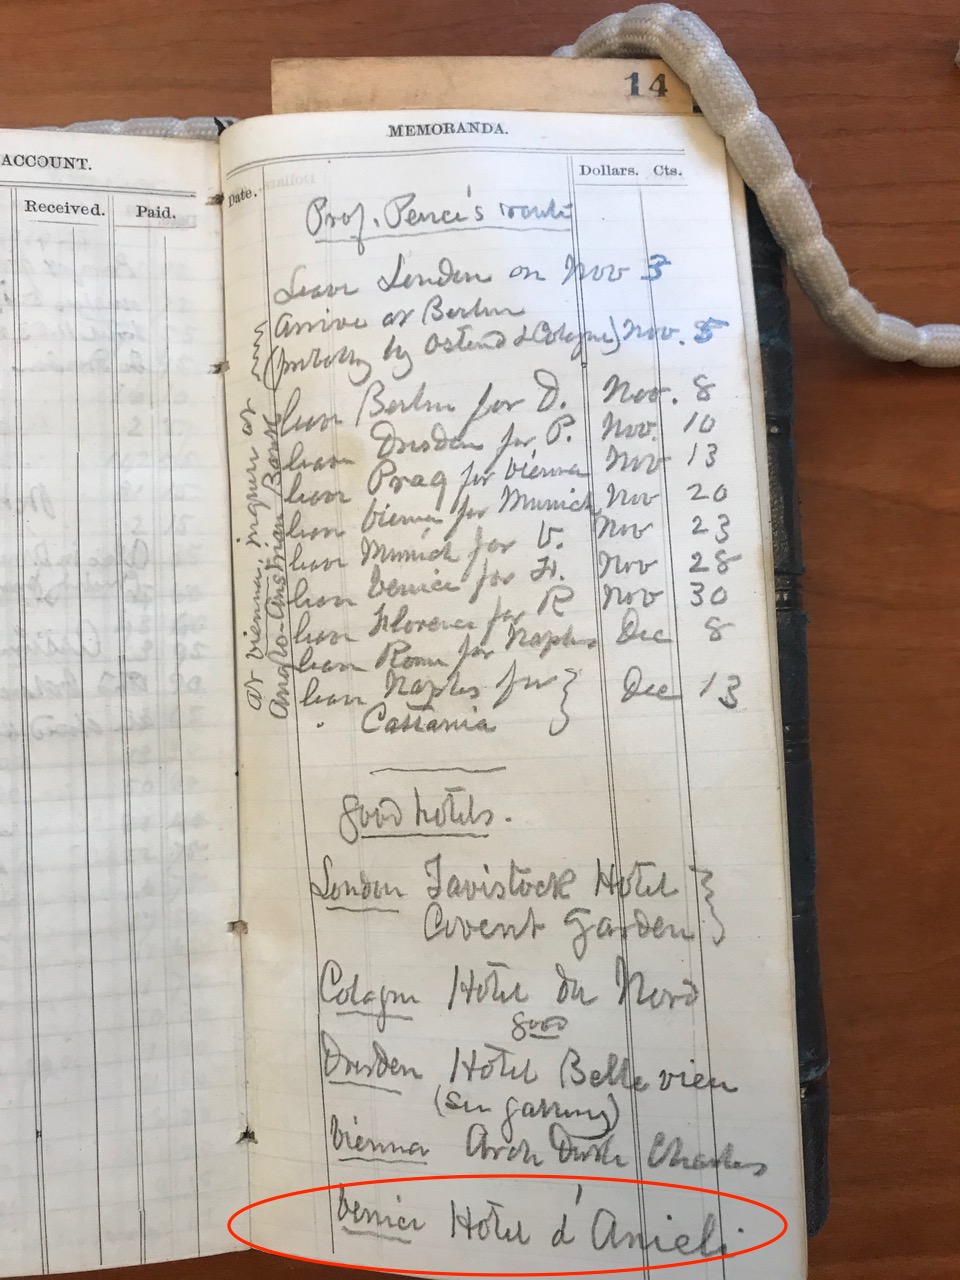 14
ACCOUNT.
Received. Paid.
MEMORANDA.
Date. Dollars. Cts.
Prof. Peirce's route
Leave London on Nov 3
arrive at Berlin
(probably by Ostend & Cologne) Nov. 5
leave Berlin for D. Nov. 8
leave Dresden for P. Nov. 10
leave Prag for Vienna Nov 13
leave Vienna for Munich Nov 20
leave Munich for V. Nov 23
leave Venice for Fl. Nov 28
leave Florence for R Nov 30
leave Rome for Naples Dec 8
leave Naples for } Dec 13
Cattania
at Vienna, inquire at
Anglo-Austrian Bank
good hotels.
London Tavistock Hotel
Covent Garden
Cologne Hotel du Nord
good
Dresden Hotel Belle view
(See gallery)
Vienna Arch Duke Charles
Venice Hotel d'Anieli